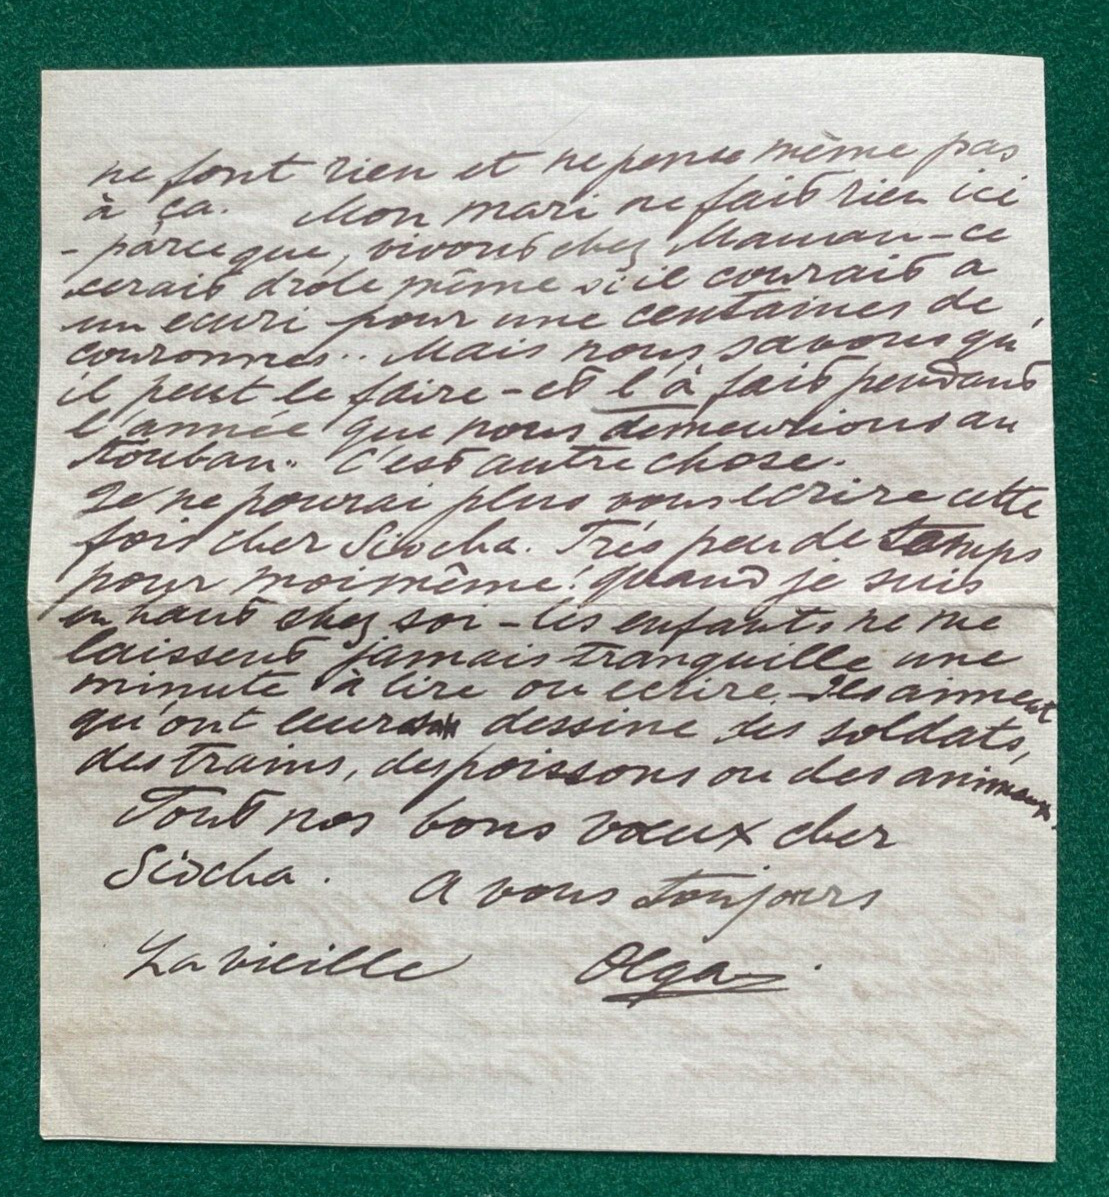 ne font rien et ne pense même pas
à ça. Mon mari ne fait rien ici
- parce que, vivont chez Maman - ce
serait drole même si il courait a
un ecuri pour une centaines de
couronnes.. Mais nous savons qu'
il peut le faire - et l'à fait pendant
l'année que nous demeurions au
Kouban. C'est autre chose.
Je ne pourai plus vous ecrire cette
fois cher Siocha. Très peu de temps
pour moi même! quand je suis
en haut chez soi - les enfants ne me
laissent jamais tranquille une
minute à lire ou ecrire - Ils aiment
qu'ont leur dessine des soldats,
des trains, des poissons ou des animaux.
Tout nos bons vœux cher
Siocha. A vous toujours
La vieille Olga.